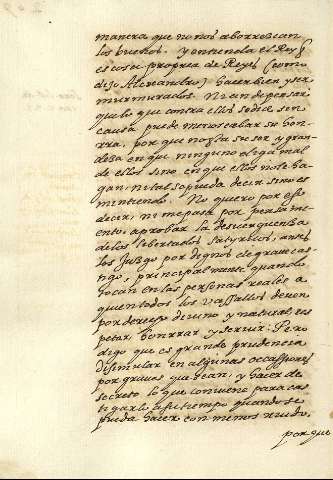 manera que no nos aborrezcan
los buenos. y entienda el Rey q
es cosa propria de Reyes (como
dijo Alexandro) hacer bien y ser
murmurados. No an de pensar
que lo que contra ellos se dice sin
causa puede menoscabar su hon
rra, por que no esta su ser y gran
deza en que ninguno diga mal
de ellos sino en que ellos no le ha
gan, ni tal se pueda decir sino es
mintiendo. No quiero por esto
decir, ni me passe por pensami
ento, aprobar la desverguenza
de los libertados satyricos, antes
los juzgo por dignos de grave cas
tigo, principalmente quando
tocan en las personas reales a
quien todos los vassallos deven
por derecho divino y natural res
petar honrrar y servir: Pero
digo que es grande prudencia
disimular en algunas occassiones
por graves que sean, y hacer de
secreto lo que conviene para cas
tigarlo a su tiempo quando se
pueda hacer con menos ruido.
por que